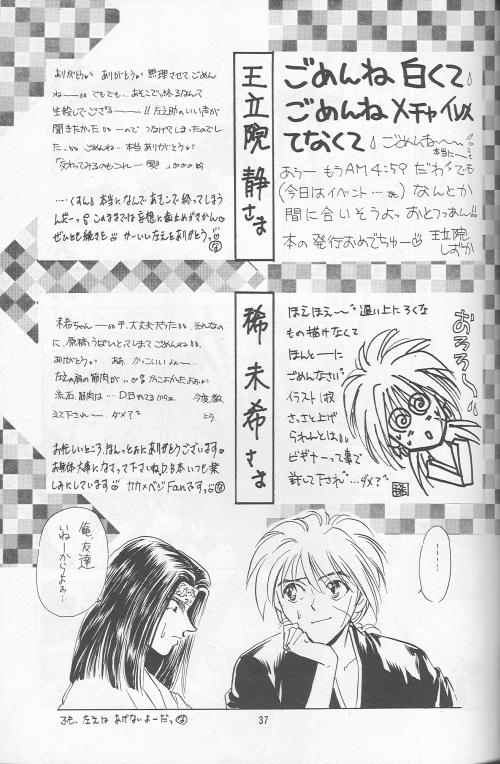 王立院 静さま
ごめんね 白くて
ごめんね メチャイメ
てなくて ごめんね〜
本当に〜
おうー もうAM4:59 だわ でも
(今日はイベント…) なんとか
間に合いそうよっ おとっつぁん!!
本の発行おめでちゅー♡ 王立院
しずか
ありがとう ありがとう 無理させて ごめん
ね でもでも、あそこで終るなんて
生殺しでござるーー!! 左之助のいい声が
聞きたかった ーので つなげてしまったのでし
た ごめんね… 本当ありがとう
「交わってみるのもこれ一興」
…くすん 本当になんで あそこで 終ってしまう
んだーっ このままでは妄想に歯止めがきかん
ぜひとも続きを かーいい左えをありがとう
稀 未希さま
ほえほえ〜 遅い上にろくな
もの描けなくて
ほんとーに
ごめんなさい
イラスト1枚
さっさと上げ
られんとは
ビギナーって事で
許して下され…ダメ?
おろろ〜
稀
未希ちゃん 大丈夫だった それなの
に、原稿うばいとってしまって ごめんね
ありがとう ああ、かっこいい
左之の肩の筋肉が かっこよかった
流石、筋肉は… D.Bやってるからぁ 今度、教
えて下され ダメ?
お忙しいところ、ほんっとぉにありがとうございます
お身体大事になさって下さいね D.B本いつも楽
しみにしています カカ×ベジFanですっ
俺、友達
いねーからよォ…
……
でも、左えは あげないよーだっ
37